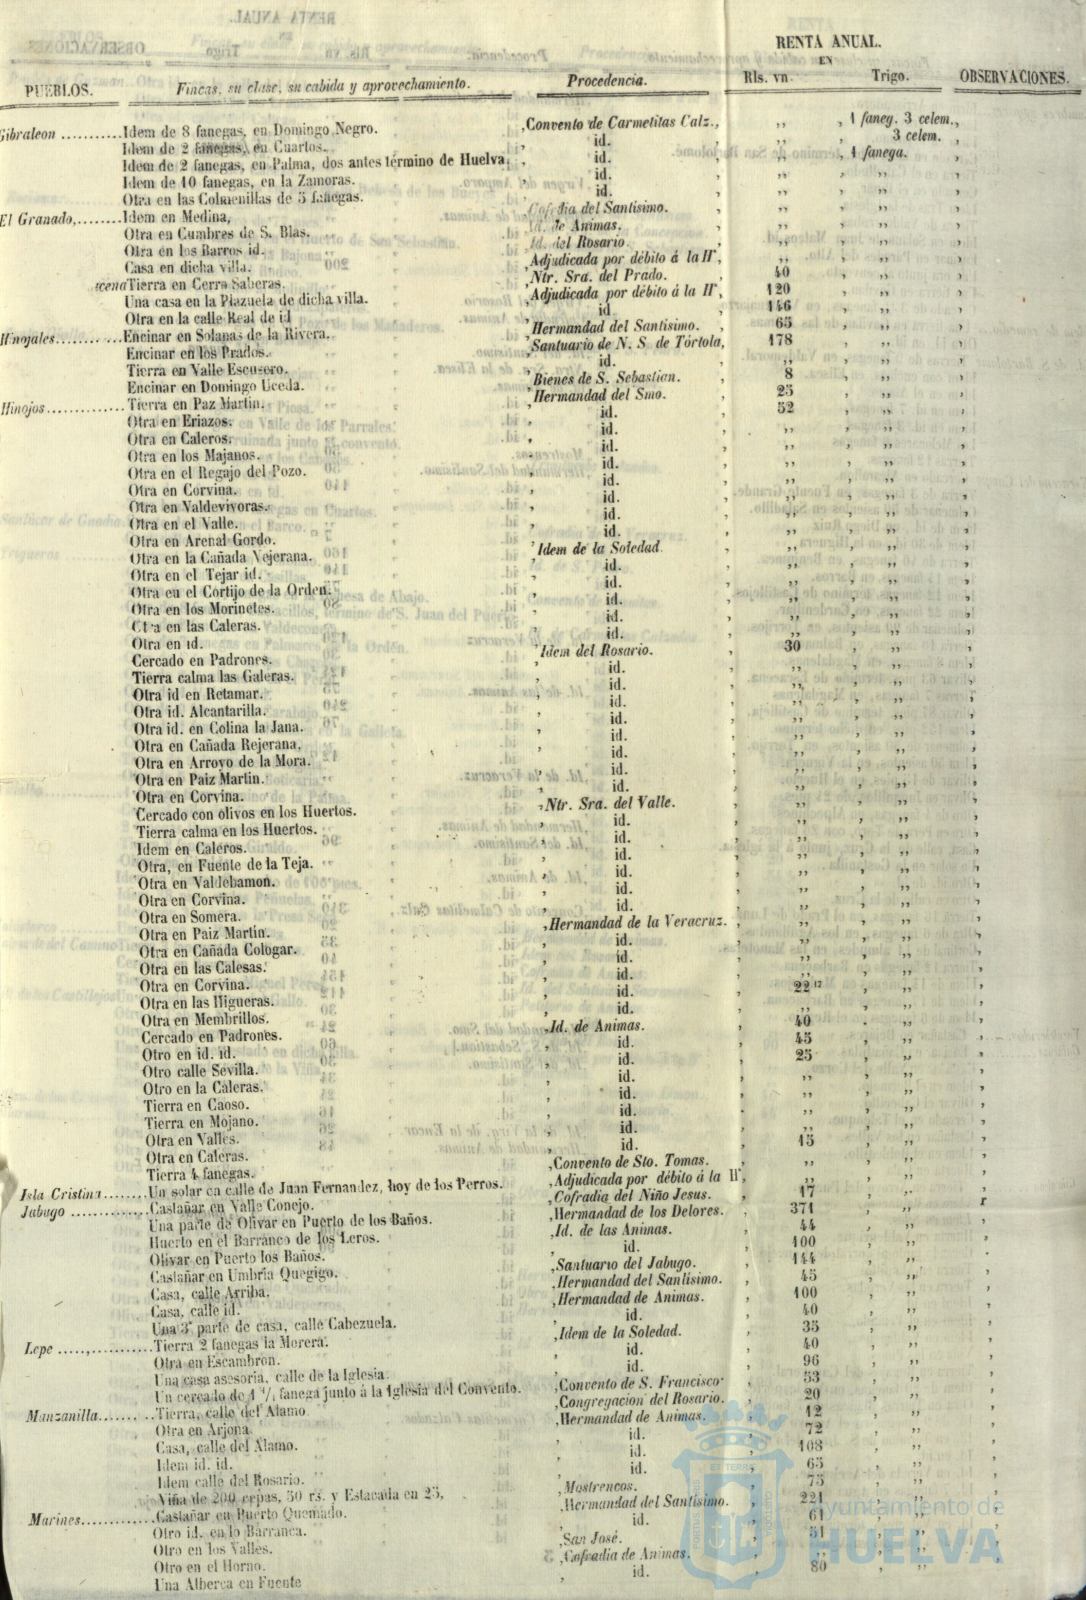 RENTA ANUAL.
EN
PUEBLOS. Fincas, su clase, su cabida y aprovechamiento. Procedencia. Rls. vn. Trigo. OBSERVACIONES.
Gibraleon .......... Idem de 8 fanegas, en Domingo Negro. Convento de Carmetitas Calz., ,, 1 faneg. 3 celem.
Idem de 2 fanegas, en Cuartos. id. ,, 3 celem.
Idem de 2 fanegas, en Palma, dos antes término de Huelva. id. ,, 1 fanega.
Idem de 10 fanegas, en la Zamoras. id. ,, ,,
Otra en las Colmenillas de 5 fanegas. id. ,, ,,
El Granado,....... Idem en Medina, Cofradia del Santisimo. ,, ,,
Otra en Cumbres de S. Blas. Id. de Animas. ,, ,,
Otra en los Barros id. Id. del Rosario. ,, ,,
Casa en dicha villa. Adjudicada por débito á la Hª, ,, ,,
Tierra en Cerra Saberas. Ntr. Sra. del Prado. 40 ,,
Una casa en la Plazuela de dicha villa. Adjudicada por débito á la Hª, 120 ,,
Otra en la calle Real de id id. 146 ,,
Hinojales......... Encinar en Solanas de la Rivera. Hermandad del Santisimo. 65 ,,
Encinar en los Prados. Santuario de N. S. de Tórtola, 178 ,,
Tierra en Valle Escusero. id. ,, ,,
Encinar en Domingo Uceda. Bienes de S. Sebastian. 8 ,,
Hinojos............. Tierra en Paz Martin. Hermandad del Smo. 25 ,,
Otra en Eriazos. id. 52 ,,
Otra en Caleros. id. ,, ,,
Otra en los Majanos. id. ,, ,,
Otra en el Regajo del Pozo. id. ,, ,,
Otra en Corvina. id. ,, ,,
Otra en Valdevivoras. id. ,, ,,
Otra en el Valle. id. ,, ,,
Otra en Arenal Gordo. id. ,, ,,
Otra en la Cañada Vejerana. Idem de la Soledad ,, ,,
Otra en el Tejar id. id. ,, ,,
Otra en el Cortijo de la Orden. id. ,, ,,
Otra en los Morinetes. id. ,, ,,
Otra en las Caleras. id. ,, ,,
Otra en id. id. ,, ,,
Cercado en Padrones. Idem del Rosario. 30 ,,
Tierra calma las Galeras. id. ,, ,,
Otra id en Retamar. id. ,, ,,
Otra id. Alcantarilla. id. ,, ,,
Otra id. en Colina la Jana. id. ,, ,,
Otra en Cañada Rejerana, id. ,, ,,
Otra en Arroyo de la Mora. id. ,, ,,
Otra en Paiz Martin. id. ,, ,,
Otra en Corvina. id. ,, ,,
Cercado con olivos en los Huertos. Ntr. Sra. del Valle. ,, ,,
Tierra calma en los Huertos. id. ,, ,,
Idem en Caleros. id. ,, ,,
Otra, en Fuente de la Teja. id. ,, ,,
Otra en Valdebamon. id. ,, ,,
Otra en Corvina. id. ,, ,,
Otra en Somera. id. ,, ,,
Otra en Paiz Martin. Hermandad de la Veracruz. ,, ,,
Otra en Cañada Cologar. id. ,, ,,
Otra en las Calesas. id. ,, ,,
Otra en Corvina. id. ,, ,,
Otra en las Higueras. id. 22 17 ,,
Otra en Membrillos. id. ,, ,,
Cercado en Padrones. Id. de Animas. 40 ,,
Otro en id. id. id. 45 ,,
Otro calle Sevilla. id. 25 ,,
Otro en la Caleras. id. ,, ,,
Tierra en Caoso. id. ,, ,,
Tierra en Mojano. id. ,, ,,
Otra en Valles. id. ,, ,,
Otra en Caleras. id. 15 ,,
Tierra 4 fanegas. Convento de Sto. Tomas. ,, ,,
Isla Cristina....... Un solar en calle de Juan Fernandez, hoy de los Perros. Adjudicada por débito á la Hª, ,, ,,
Jabugo ............. Castañar en Valle Conejo. Cofradia del Niño Jesus. 17
Una parte de Olivar en Puerto de los Baños. Hermandad de los Delores. 371 ,,
Huerto en el Barranco de los Leros. Id. de las Animas. 44 ,,
Olivar en Puerto los Baños. id. 100 ,,
Castañar en Umbria Quegigo. Santuario del Jabugo. 144 ,,
Casa, calle Arriba. Hermandad del Santísimo. 45 ,,
Casa, calle id. Hermandad de Animas. 100 ,,
Una 3ª parte de casa, calle Cabezuela. id. 40 ,,
Lepe ............... Tierra 2 fanegas la Morera. Idem de la Soledad. 35 ,,
Otra en Escambron. id. 40 ,,
Una casa asesoria, calle de la Iglesia. id. 96 ,,
Un cercado de 1 fanega junto á la Iglesia del Convento. Convento de S. Francisco 53 ,,
Manzanilla........ Tierra, calle del Alamo Congregacion del Rosario. 20 ,,
Otra en Arjona Hermandad de Animas. 12 ,,
Casa, calle del Alamo. id. 72 ,,
Idem id. id. id. 108 ,,
Idem calle del Rosario. id. 65 ,,
Viña de 200 cepas, 50 rs. y Estacada en 25, Mostrencos. 75 ,,
Marines............ Castañar en Puerto Quemado. Hermandad del Santísimo. 221 ,,
Otro id. en lo Barranca. id. 61 ,,
Otro en los Valles. San José. 51 ,,
Otro en el Horno. Cofradia de Animas. ,, ,,
Una Alberca en Fuente id. 80 ,,
Ayuntamiento de
HUELVA